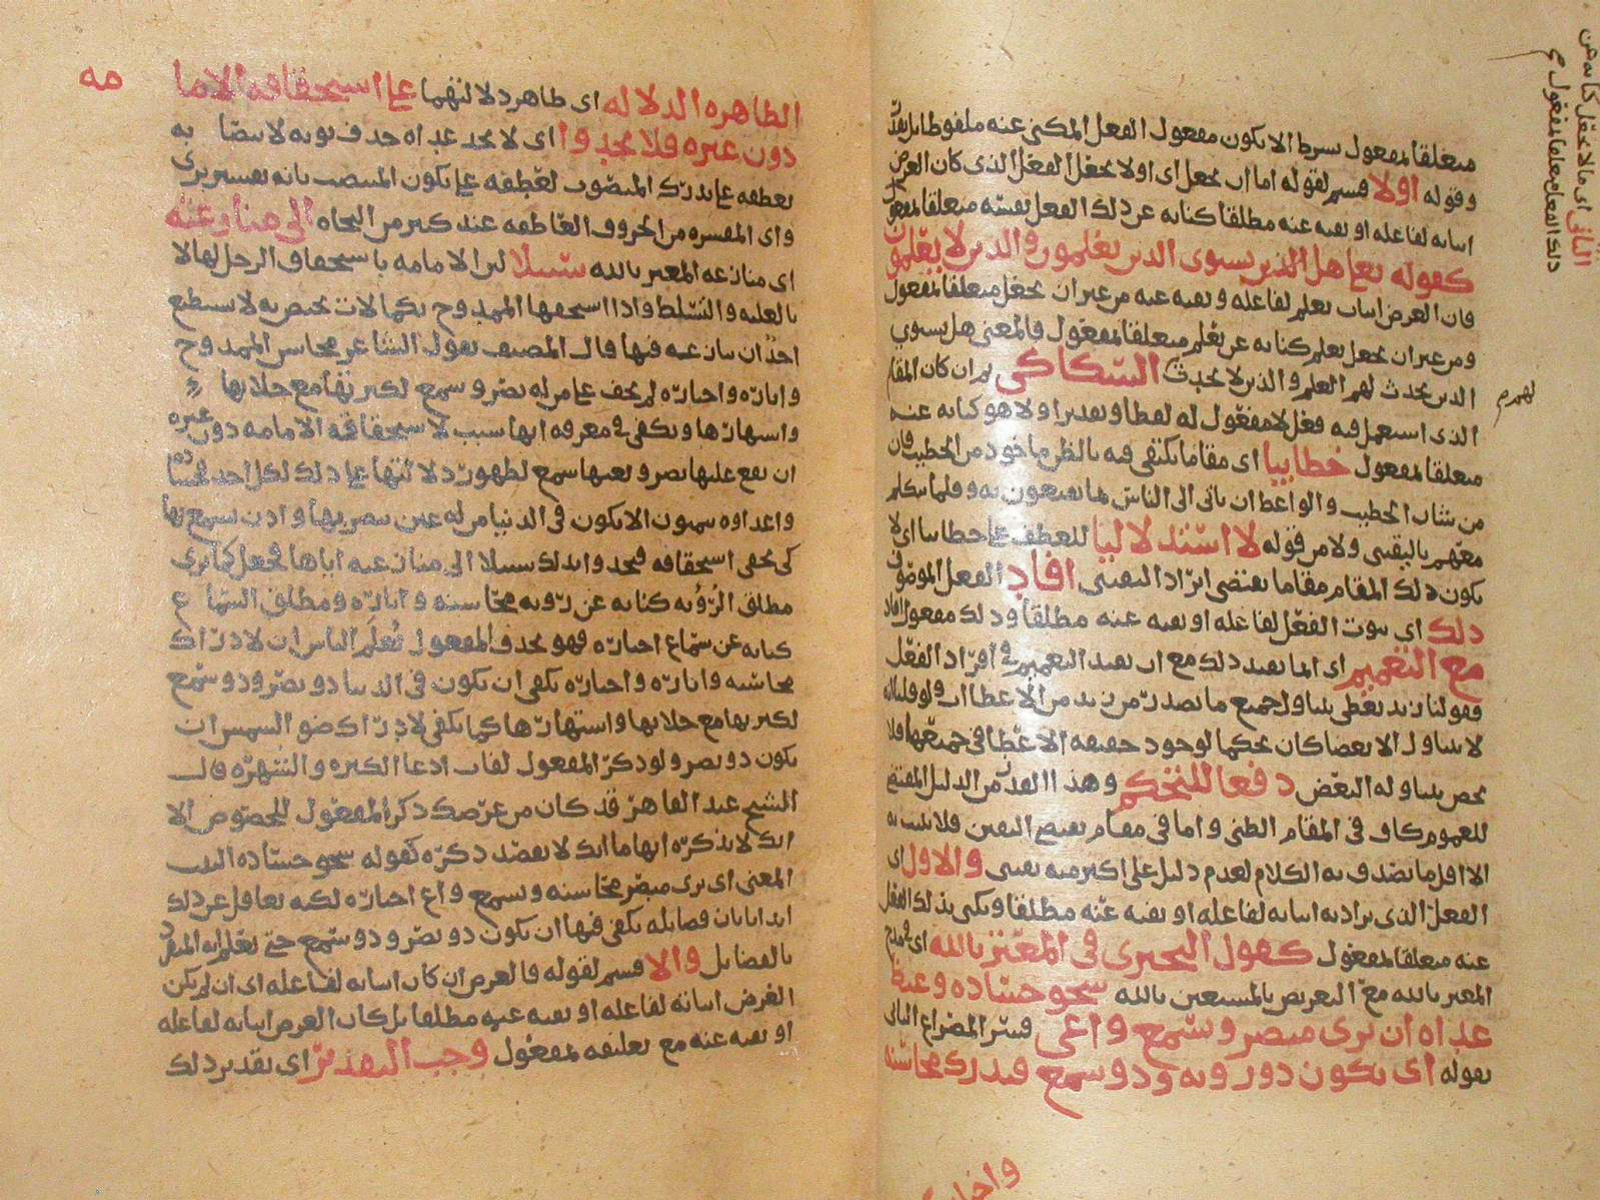 متعلقا بمفعول بشرط الا يكون مفعول الفعل المكنى عنه ملفوظا بل
وقوله اولا قسيم لقوله اما ان يجعل اى اولا يجعل الفعل الذى كان الغرض
اثباته لفاعله او نفيه عنه مطلقا كنايه عن ذلك الفعل نفسه متعلقا بمفعول
كقوله تعا هل الذين يستوى الذين يعلمون والذين لا يعلمون
فان الغرض اثبات يعلم لفاعله ونفيه عنه من غير ان يجعل متعلقا بمفعول
ومن غير ان يجعل يعلم كنايه عن يعلم متعلقا بمفعول فالمعنى هل يستوي
الذين يحدث لهم العلم والذين لا يحدث السكاكى ثم ان كان المقام
الذى استعمل فيه فعل لا مفعول له لفظا وتقديرا ولا هو كنايه عنه
متعلقا بمفعول خطابيا اى مقاما يكتفى فيه بالظن ماخوذ من الخطيب فان
من شان الخطيب والواعظ ان ياتى الى الناس بما يقنعون به وقلما يتكلم
معهم باليقينى ولا من قوله لا استدلاليا للعطف على خطابيا اى لا
يكون ذلك المقام مقاما يقتضى ايراد اليقينى افاد الفعل الموصوف
ذلك اى ثبوت الفعل لفاعله او نفيه عنه مطلقا وذلك مفعول افاد
مع التعميم اى انما يفيد ذلك مع ان يفيد التعميم فى افراد الفعل
فقولنا زيد يعطى يتناول جميع ما يصدر من زيد من الاعطا
لا يتناول الا بعضا كان تحكما لوجود حقيقه الاعطا فى جميعها فلا
يخص بتناوله البعض دفعا للتحكم وهذا القدر من الدليل المقتضى
للعموم كاف فى المقام الظنى واما فى مقام يقتضى اليقين فلا يثبت به
الا اقل ما يصدق به الكلام لعدم دليل على اكثر منه يقينى والاول اى
الفعل الذى يراد به اثباته لفاعله او نفيه عنه مطلقا ويكنى بذلك الفعل
عنه متعلقا بمفعول كقول البحترى فى المعتز بالله اى فى مدح
المعتز بالله مع التعريض بالمستعين بالله شجو حساده وغيظ
عداه ان يرى مبصر ويسمع واعى فسر المصراع الثانى
بقوله اى يكون ذو رويه وذو سمع فيدرك محاسنه
الثانى اى مالا يجعل كنايه عن
ذلك الفعل متعلقا بمفعول
لهم
الظاهره الداله اى ظاهر دلالتهما على استحقاقه الاما
دون غيره فلا يجدوا اى لا يجد عداه حذف نونه لانتصا به
بعطفه على يدرك المنصوب لعطفه على يكون المنتصب بانه تفسير يرى
واى المفسره من الحروف العاطفه عند كثير من النحاه الى منازعته
اى منازعه المعتز بالله سبيلا
بالغلبه والتسلط واذا استحقها الممدوح بكمالات تختص به لا يستطيع
احد ان ينازعه فيها قال المصنف يقول الشاعر محاسن الممدوح
واثاره واخباره لم يخف على من له بصر وسمع لكثرتها مع جلائها
واشتهارها ويكفى فى معرفه انها سبب لاستحقاقه الامامه دون غيره
ان يقع عليها بصر ويعيها سمع لظهور دلالتها على ذلك لكل احد فحساده
واعداوه يتمنون الا يكون فى الدنيا من له عين يبصر بها واذن يسمع بها
كى يخفى استحقاقه فيجدوا بذلك سبيلا الى منازعته اياها فجعل كما ترى
مطلق الرؤيه كنايه عن رويه محاسنه واثاره ومطلق السماع
كنايه عن سماع اخباره فهو بحذف المفعول يعلم الناس ان لادراك
محاسنه واثاره واخباره يكفى ان يكون فى الدنيا ذو بصر وذو سمع
لكثرتها مع جلائها واشتهارها كما يكفى لادراك ضو الشمس ان
يكون ذو بصر ولو ذكر المفعول لفات ادعا الكثره والشهره قال
الشيخ عبد القاهر قد كان من غرضك ذكر المفعول للخصوص الا
انك لا تذكره ايهاما انك لا تقصد ذكره كقوله شجو حساده البيت
المعنى اى يرى مبصر محاسنه ويسمع واع اخباره لكنه تغافل عن ذلك
ايذانا بان فضائله يكفى فيها ان يكون ذو بصر وذو سمع حتى يعلم انه المنفرد
بالفضايل والا قسيم لقوله فالغرض ان كان اثباته لفاعله اى ان لم يكن
الغرض اثباته لفاعله او نفيه عنه مطلقا بل كان الغرض اثباته لفاعله
او نفيه عنه مع تعليقه بمفعول وجب التقدير اى تقدير ذلك